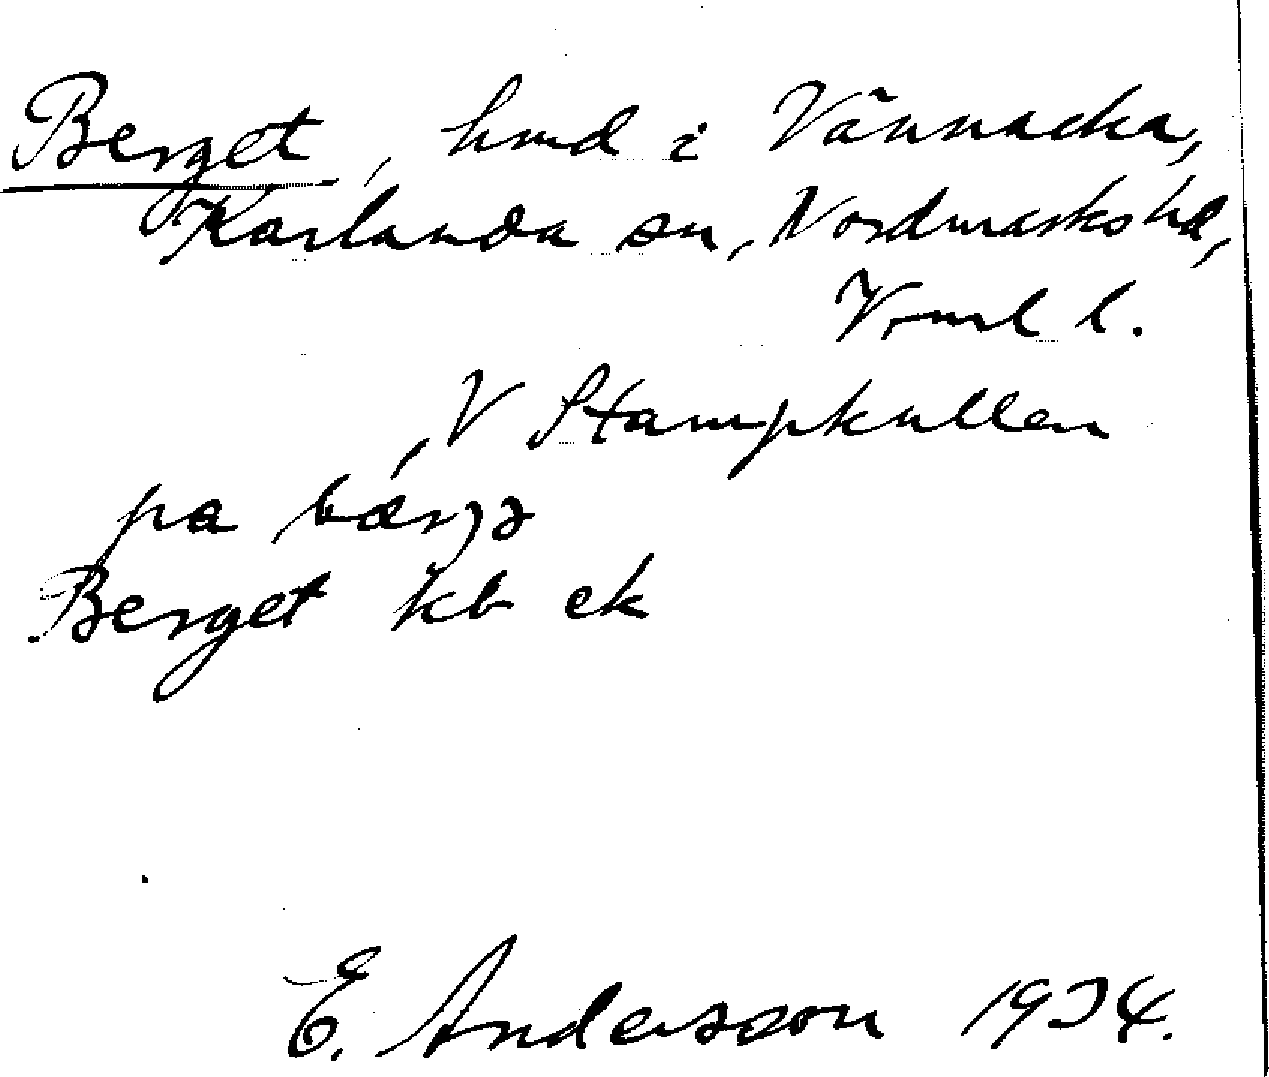 Berget, hmd i Vännacka,
Karlanda sn, Nordmarks hd,
Vrml l.
, V Stampkullen
pa bærjə
Berget kb ek
E. Andersson 1934.